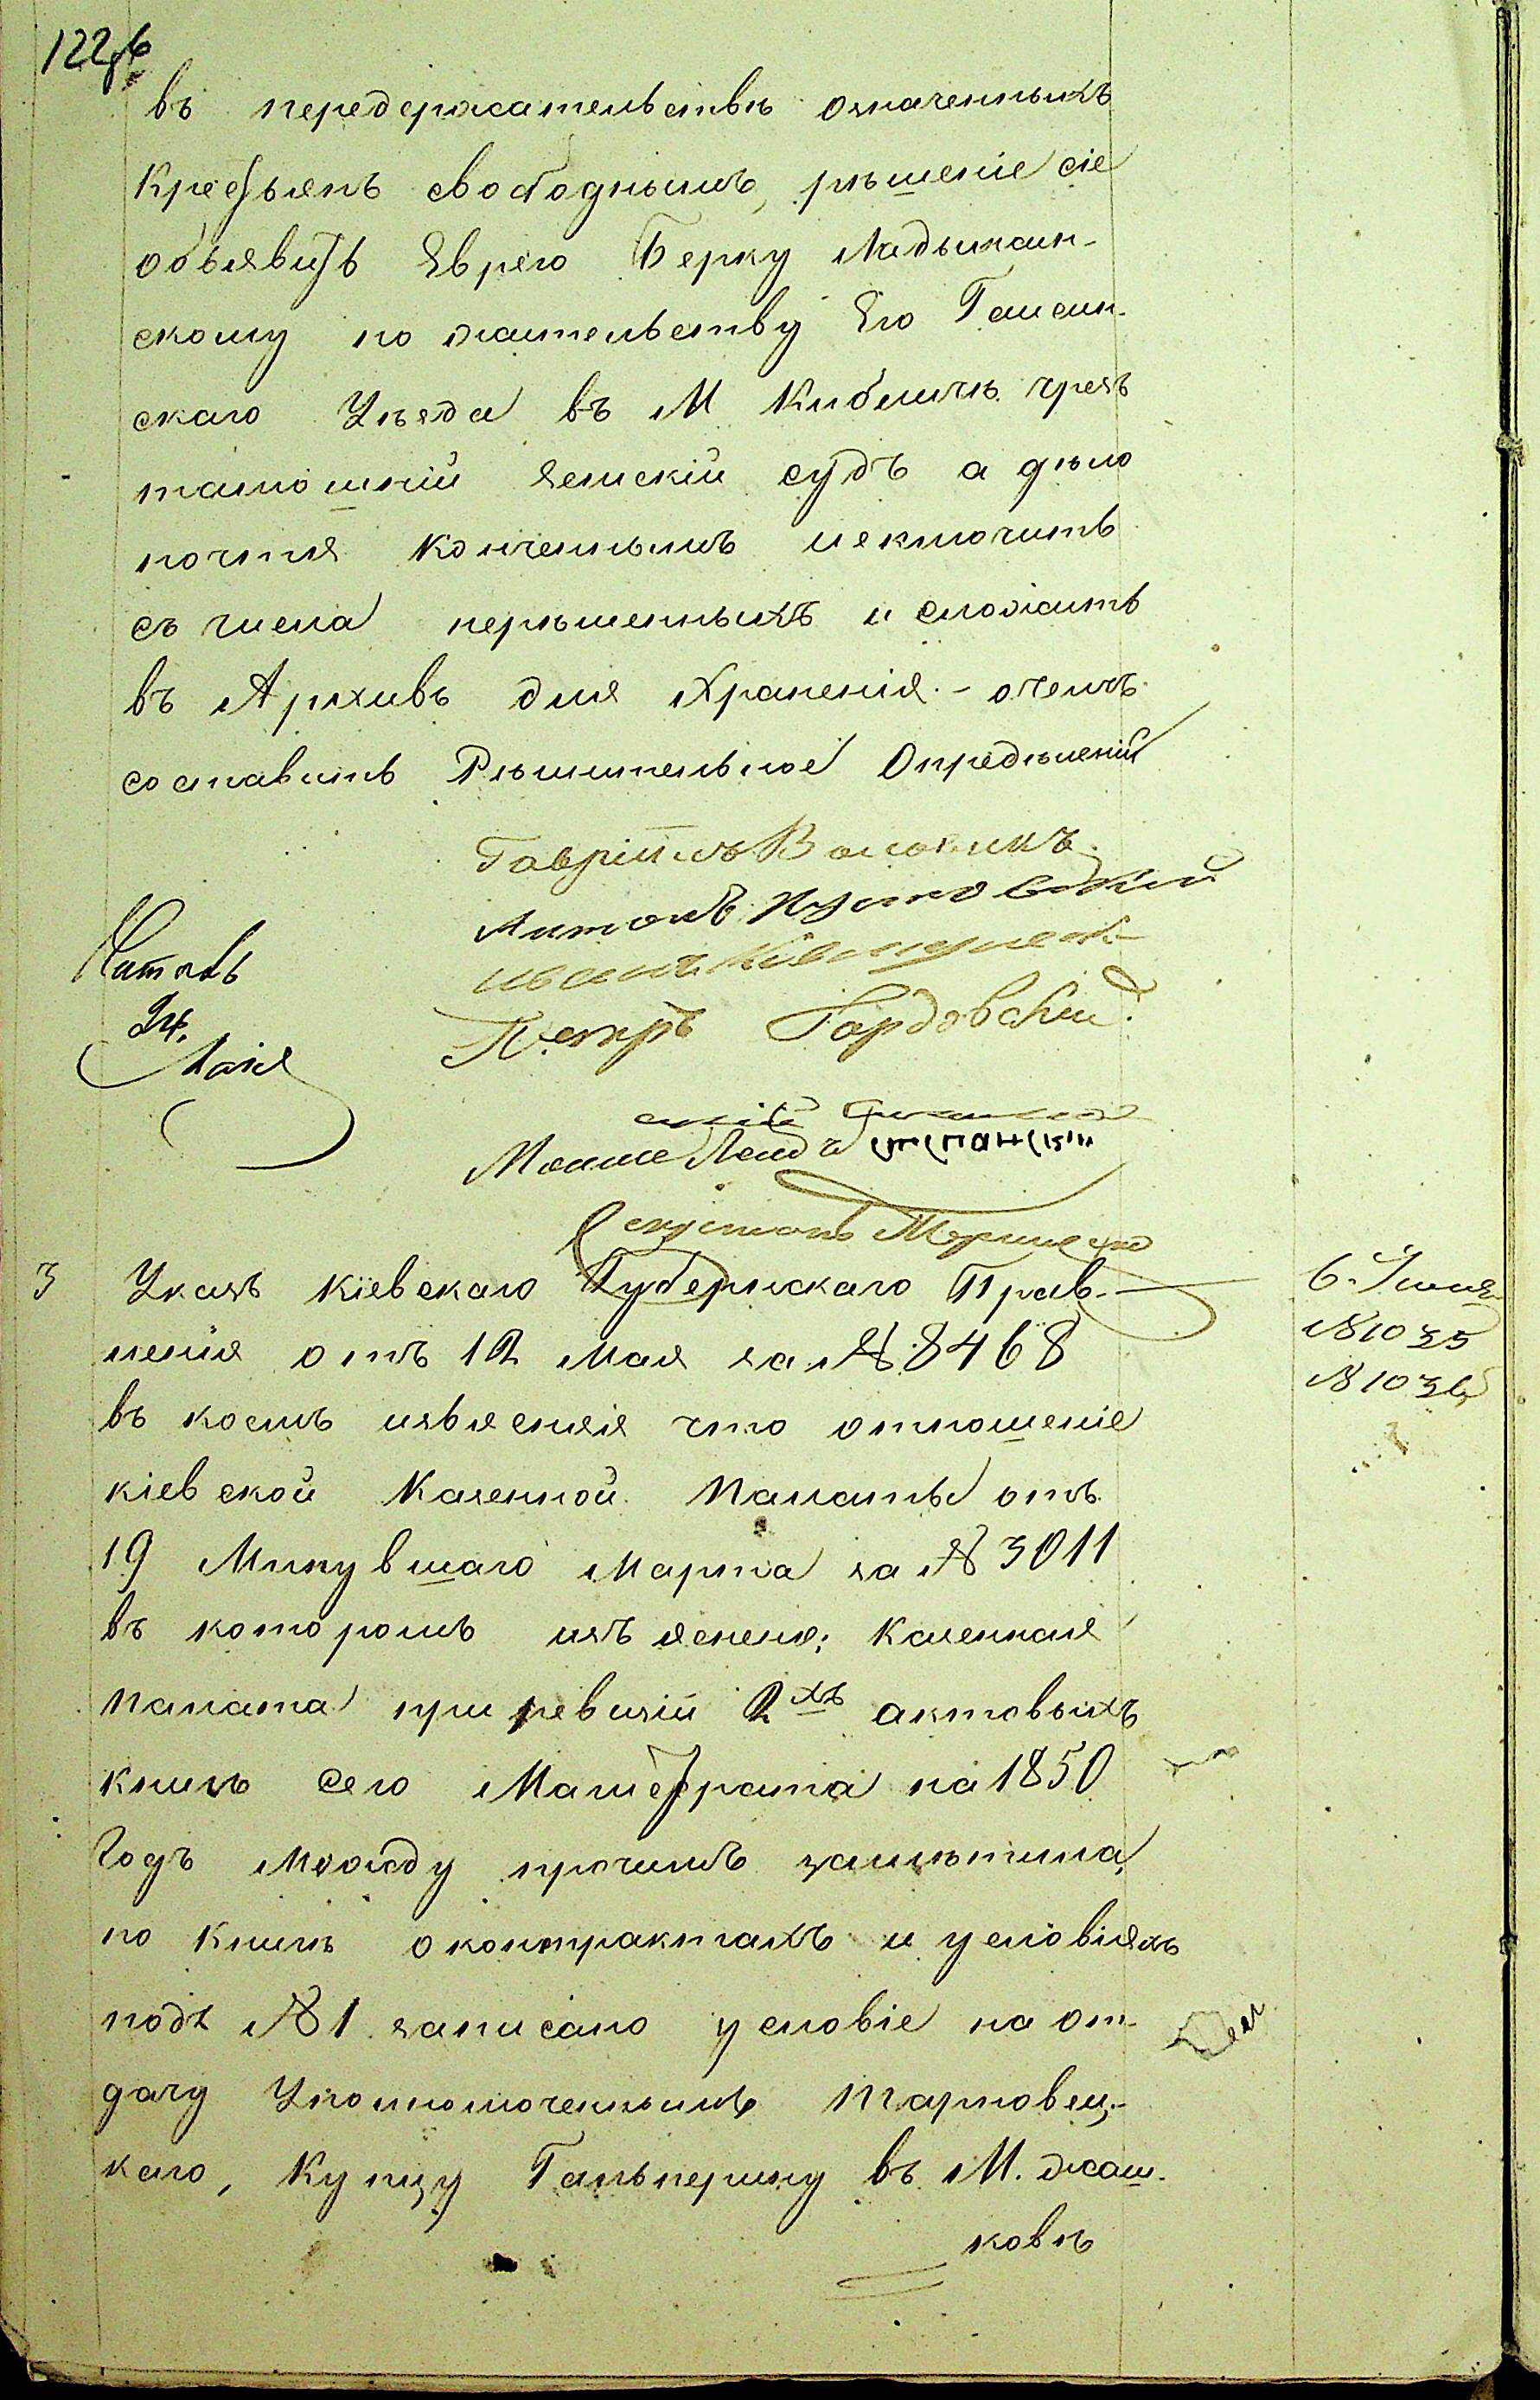 122об
въ передержательствѣ означенныхъ
Крестьянъ свободнымъ, рѣшеніе сіе
объявить Еврею Берку Ладыжин-
скому по жительству Его Гайсин-
скаго Уѣзда въ М Кибличѣ чрезъ
тамошній Земскій судъ а дѣло
почтя конченнымъ исключить
съ числа нерѣшенныхъ и сложить
въ Архивъ для Храненія - о чемъ
составить Рѣшительное Опредѣленій
Гавріилъ
Антонъ
Иванъ
Читалъ
24.
Мая
Петръ Гардовскій
3 Указъ Кіевскаго Губернскаго Прав-
ленія отъ 12 Мая за № 8468
въ коемъ изъясняя что отношеніе
кіевской Казенной Палаты отъ
19 Минувшаго Марта за № 3011
въ которомъ изъяснено: Казенная
Палата при ревизіи 2хъ актовыхъ
книгъ сего Магистрата на 1850
Годъ Между прочимъ замѣтила,
по книгѣ о контрактахъ и условіяхъ
подъ № 1 записано условіе на от-
дачу Уполномоченнымъ Тарновец-
каго, Купцу Гальперину въ М. Жаш-
ковѣ
6. Іюня
№ 1035
№ 1036